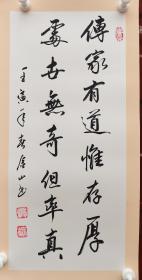 傳家有道惟存厚
處世無奇但率真
壬寅年春唐山书